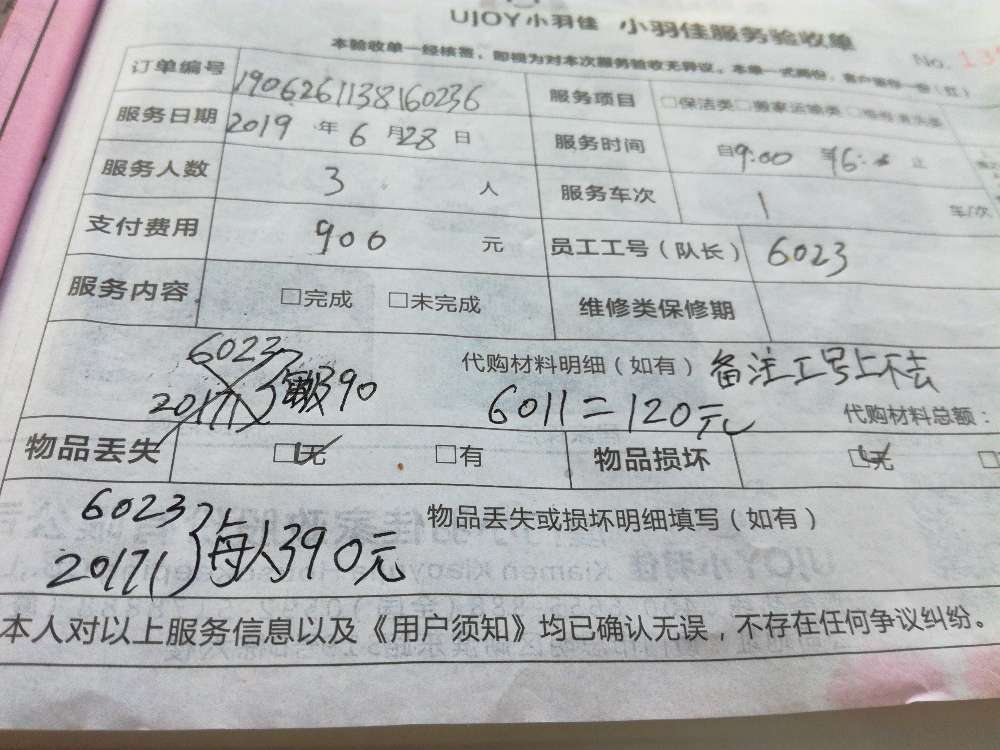 UJOY小羽佳 小羽佳服务验收单
No.
本验收单一经核签，即视为对本次服务验收无异议。本单一式两份，客户留存一份（红）
订单编号 1906261138160236 服务项目 □保洁类□搬家运输类
服务日期 2019 年 6 月 28 日 服务时间 自9:00 止
服务人数 3 人 服务车次 1 车/次
支付费用 900 元 员工工号（队长） 6023
服务内容 □完成 □未完成 维修类保修期
6023
20171 390
代购材料明细（如有） 备注工号上不去
6011=120元 代购材料总额：
物品丢失 □无 □有 物品损坏 □无 □
6023
20171 每人390元
物品丢失或损坏明细填写（如有）
本人对以上服务信息以及《用户须知》均已确认无误，不存在任何争议纠纷。